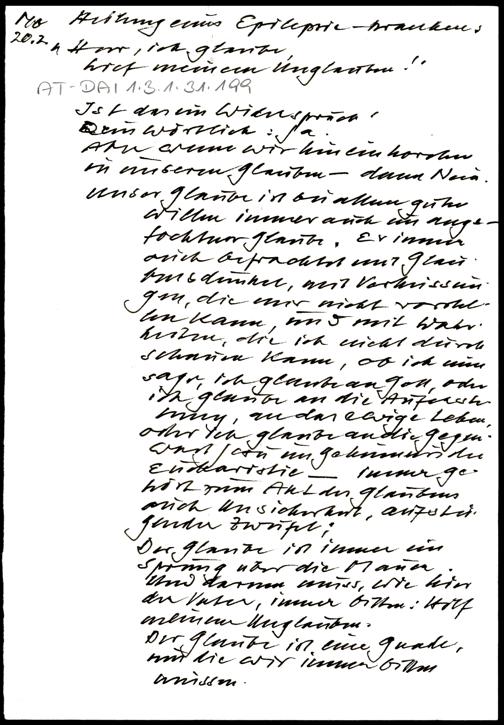 Mo Heilung eines Epilepsie-kranken
20.2. „Herr, ich glaube,
hilf meinem Unglauben!"
AT-DAI 1.3.1.31.199
Ist das ein Widerspruch?
Rein wörtlich: Ja.
Aber wenn wir hineinhorchen
in unseren Glauben – dann Nein.
Unser Glaube ist bei allem guten
Willen immer auch ein ange-
fochtener Glaube. Er immer
auch befrachtet mit Glau-
bensdunkel, mit Verheissun-
gen, die mir nicht vorstel-
len kann, und mit Wahr-
heiten, die ich nicht durch
schauen kann, ob ich nun
sage, ich glaube an Gott, oder
ich glaube an die Auferste-
hung, an das ewige Leben,
oder ich glaube an die Gegen-
wart Jesu im Geheimnis der
Eucharistie – immer ge-
hört zum Akt des Glaubens
auch Unsicherheit, aufstei-
gender Zweifel;
Der Glaube ist immer ein
Sprung über die Mauer.
Und darum muss, wie hier
der Vater, immer bitten: Hilf
meinem Unglauben.
Der Glaube ist eine Gnade,
um die wir immer bitten
müssen.